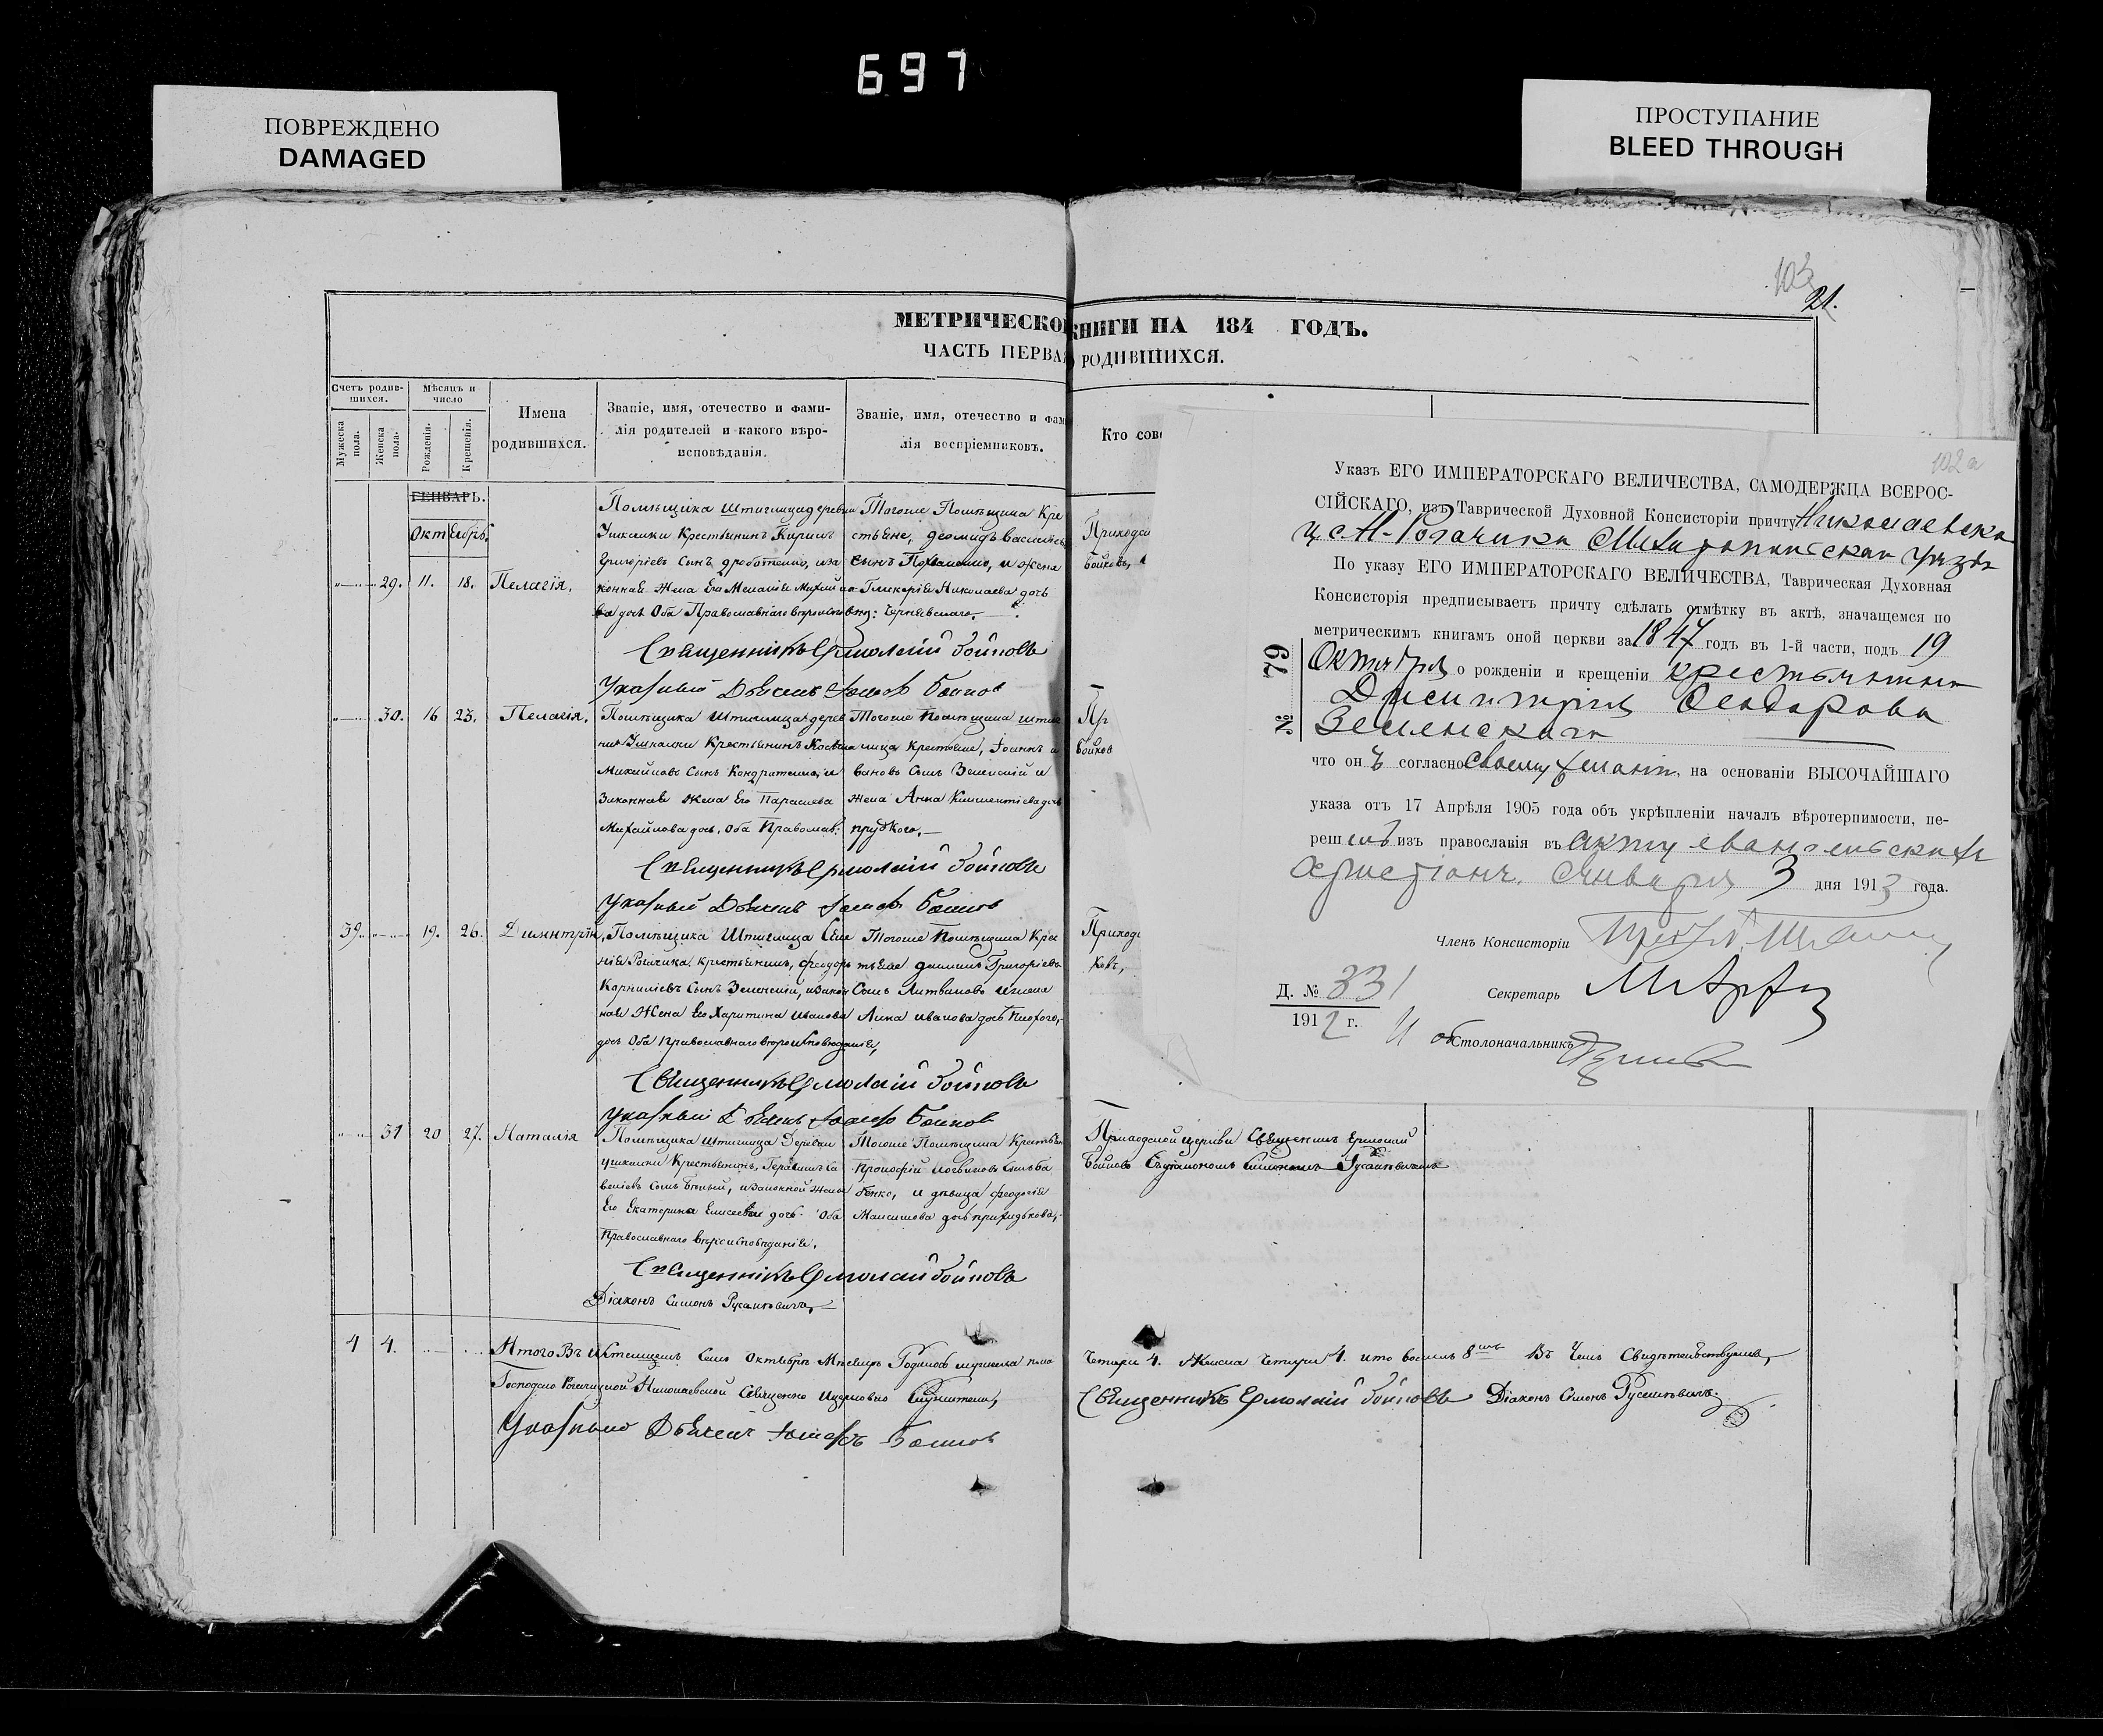 697
ПОВРЕЖДЕНО
DAMAGED
ПРОСТУПАНИЕ
BLEED THROUGH
103
21.
МЕТРИЧЕСКО КНИГИ НА 184 ГОДЪ.
ЧАСТЬ ПЕРВАЯ РОДИВШИХСЯ.
Счетъ родив-
шихся.
Мужеска пола.
Женска пола.
Мѣсяцъ и число
Рожденія.
Крещенія.
Имена
родившихся.
Званіе, имя, отечество и фами-
лія родителей и какого вѣро-
исповѣданія.
Званіе, имя, отечество и фам
лія воспріемниковъ.
Кто сов
ГЕНВАРЬ.
Октябрь.
29. 11. 18. Пелагія,
Помѣщика Штиглица деревни
Ушкалки Крестьянинъ Кирилъ
Григоріевъ Сынъ
конная Жена Его Меланія
дочь Оба Православнаго
Тогоже Помѣщика Кре
стьяне, Деомидъ
Сынъ и жена
Гликерія Николаева дочь
Приходс
Бойковъ,
Священникъ Ермолай Бойковъ
Указный Дьячекъ Іосифъ Бойков
30. 16 23. Пелагія,
Помѣщика Штиглица дерев
ни Ушкалки Крестьянинъ Косьма
Михайловъ Сынъ Кондратенко, и
Законная Жена Его Параскева
Михайлова дочь, Оба Православ:
Тогоже Помѣщика Штиг
лица Крестьяне, Іоаннъ И
вановъ Сынъ Зеленскій и
Жена Анна Климентіева дочь
Пр
Бойков
Священникъ Ермолай Бойковъ
Указный Дьячекъ Іосифъ Бойков
39. 19. 26. Димитрій,
Помѣщика Штиглица Села
нія Рогачика крестьянинъ, Феодоръ
Корниліевъ Сынъ Зеленскій, и Закон
ная Жена Его Харитина Иванова
дочь Оба Православнаго вѣроисповѣданія,
Тогоже Помѣщика Крес
тьяне Даніилъ Григоріевъ
Сынъ Литвиновъ и жена
Анна Иванова дочь
Приход
ковъ,
Священникъ Ермолай Бойковъ
Указный Дьячекъ Іосифъ Бойков
31 20 27. Наталія
Помѣщика Штиглица Деревни
Ушкалки Крестьянинъ, Герасимъ Са
веліевъ Сынъ Бѣлый, и Законной Жена
Его Екатерина Елисеева дочь Оба
Православнаго вѣроисповѣданія,
Тогоже Помѣщика Крестьян
Прокофій Логвиновъ Сынъ Ба
бенко, и дѣвица Феодосія
Максимова дочь
Приходской церкви Священникъ Ермолай
Бойковъ Съ діакономъ Симономъ Русанѣвичемъ
Священникъ Ермолай Бойковъ
Діаконъ Симонъ Русанѣвичъ,
4 4.
Итого Въ Октябрѣ Мѣсяцѣ Родилось мужеска пола
Четыре 4. Женска Четыре 4. ито восемь 8 Въ Чемъ Свидѣтельствуемъ,
Николаевской Священно Церковно Служители,
Священникъ Ермолай Бойковъ Діаконъ Симонъ Русанѣвичъ.
Указный Дьячекъ Іосифъ Бойков
102а
Указъ ЕГО ИМПЕРАТОРСКАГО ВЕЛИЧЕСТВА, САМОДЕРЖЦА ВСЕРОС-
СІЙСКАГО, изъ Таврической Духовной Консисторіи причту Николаевской
ц. с. Н-Рогачика Мелитопольскаго уѣзда
По указу ЕГО ИМПЕРАТОРСКАГО ВЕЛИЧЕСТВА, Таврическая Духовная
Консисторія предписываетъ причту сдѣлать отмѣтку въ актѣ, значащемся по
метрическимъ книгамъ оной церкви за 1847 годъ въ 1-й части, подъ 19
Октября о рожденіи и крещеніи крестьянина
Димитрія Феодорова
Зеленскаго
№ 79
что онъ согласно своему желанію, на основаніи ВЫСОЧАЙШАГО
указа отъ 17 Апрѣля 1905 года объ укрѣпленіи началъ вѣротерпимости, пе-
решелъ изъ православія въ секту евангельскихъ
христіанъ. Января 3 дня 1913 года.
Членъ Консисторіи
Д. № 331
1912 г.
Секретарь
И об Столоначальникъ